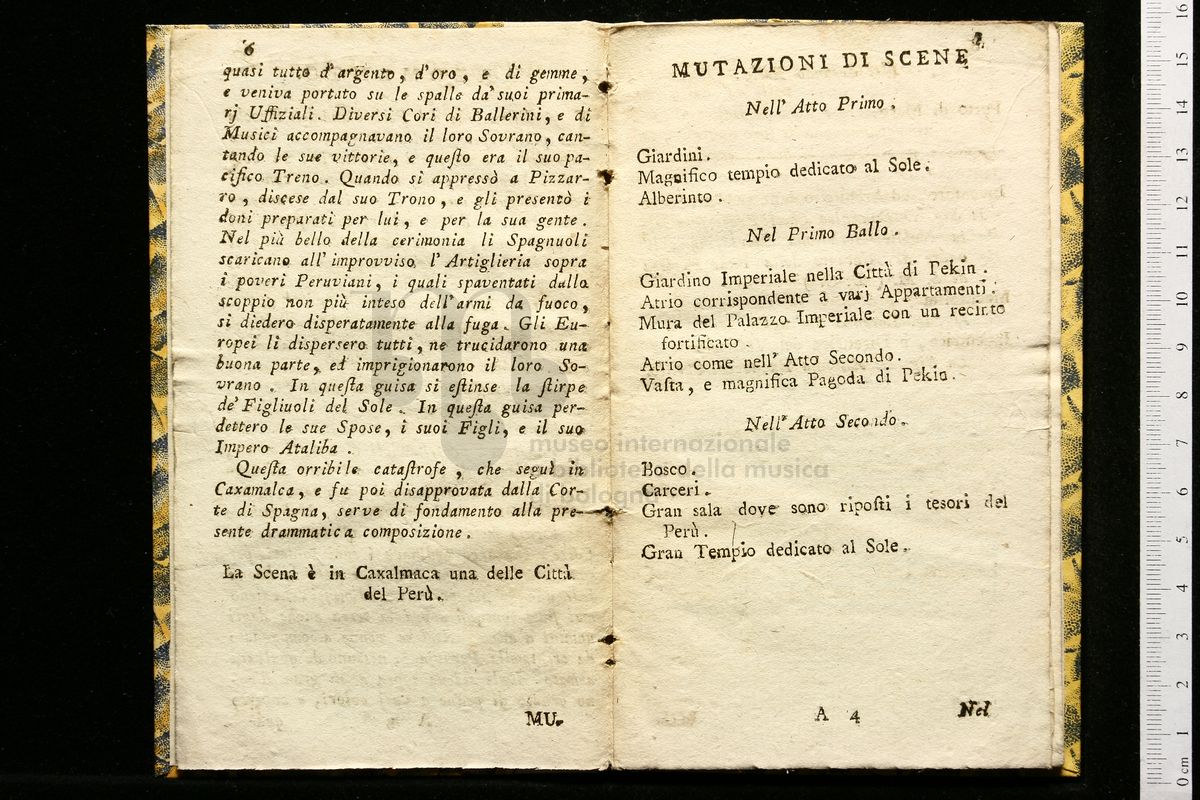 6
quasi tutto d'argento, d'oro, e di gemme,
e veniva portato su le spalle da' suoi prima-
rj Uffiziali. Diversi Cori di Ballerini, e di
Musici accompagnavano il loro Sovrano, can-
tando le sue vittorie, e queſto era il suo pa-
cifico Treno. Quando si appressò a Pizzar-
ro, discese dal suo Trono, e gli presentò i
doni preparati per lui, e per la sua gente.
Nel più bello della cerimonia li Spagnuoli
scaricano all'improvviso l'Artiglieria sopra
i poveri Peruviani, i quali spaventati dallo
scoppio non più inteso dell'armi da fuoco,
si diedero disperatamente alla fuga. Gli Eu-
ropei li dispersero tutti, ne trucidarono una
buona parte, ed imprigionarono il loro So-
vrano. In queſta guisa si eſtinse la ſtirpe
de' Figliuoli del Sole. In queſta guisa per-
dettero le sue Spose, i suoi Figli, e il suo
Impero Ataliba.
Queſta orribile cataſtrofe, che seguì in
Caxamalca, e fu poi disapprovata dalla Cor-
te di Spagna, serve di fondamento alla pre-
sente drammatica composizione.
La Scena è in Caxalmaca una delle Città
del Perù.
MU-
MUTAZIONI DI SCENE
Nell' Atto Primo.
Giardini.
Magnifico tempio dedicato al Sole.
Alberinto.
Nel Primo Ballo.
Giardino Imperiale nella Città di Pekin.
Atrio corrispondente a varj Appartamenti.
Mura del Palazzo Imperiale con un recinto
fortificato.
Atrio come nell' Atto Secondo.
Vaſta, e magnifica Pagoda di Pekin.
Nell' Atto Secondo.
Bosco.
Carceri.
Gran sala dove sono ripoſti i tesori del
Perù.
Gran Tempio dedicato al Sole.
A 4
Nel
museo internazionale
e biblioteca della musica
di bologna
0 cm 1 2 3 4 5 6 7 8 9 10 11 12 13 14 15 16